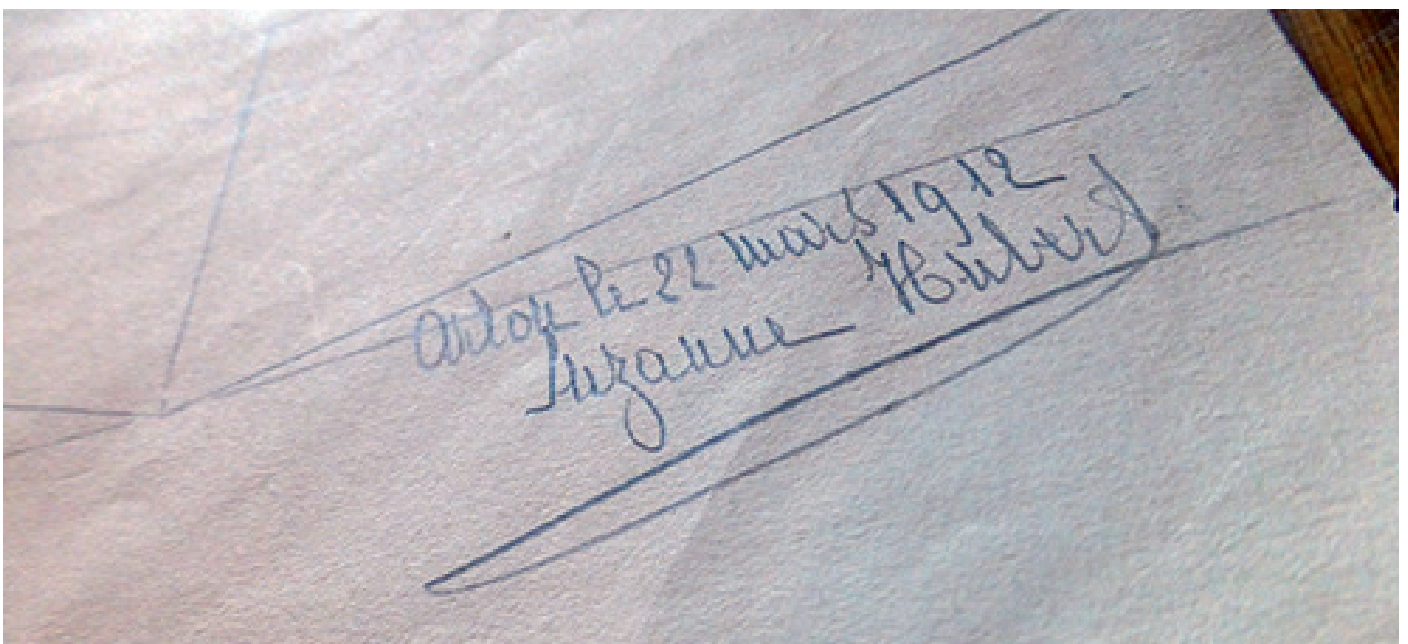 Arlon le 22 mars 1912
Suzanne Hubert